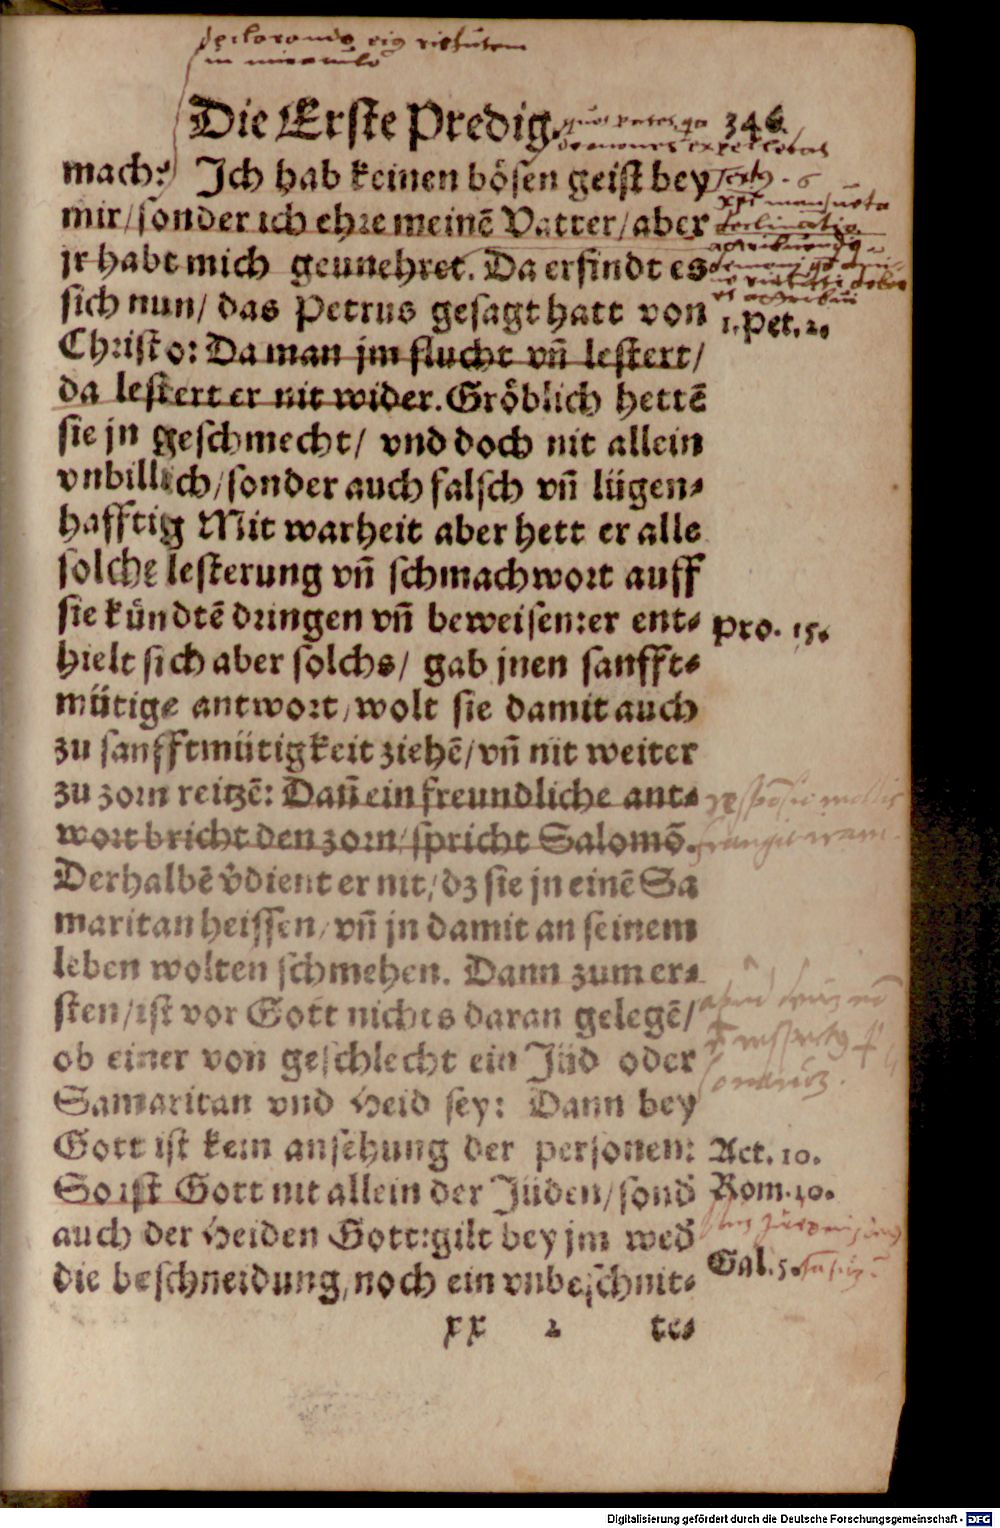 Die Erste Predig. 346.
mach: Ich hab keinen bösen geist bey
mir/sonder ich ehre meinē Vatter/aber
jr habt mich geunehret. Da erfindt es
sich nun/ das Petrus gesagt hatt von
1. Pet. 2.
Christo: Da man jm flucht vñ lestert/
da lestert er nit wider. Gröblich hettē
sie jn geschmecht/ vnd doch nit allein
vnbillich/sonder auch falsch vñ lügen-
hafftig Mit warheit aber hett er alle
solche lesterung vñ schmachwort auff
sie kündtē dringen vñ beweisen:er ent-
Pro. 15.
hielt sich aber solchs/ gab jnen sanfft-
mütige antwort/wolt sie damit auch
zu sanfftmütigkeit ziehē/vñ nit weiter
zu zorn reitzē: Dañ ein freundliche ant-
wort bricht den zorn/spricht Salomō.
Derhalbē v̄dient er nit/dz sie jn einē Sa
maritan heissen/vñ jn damit an seinem
leben wolten schmehen. Dann zum er-
sten/ist vor Gott nichts daran gelegē/
ob einer von geschlecht ein Jüd oder
Samaritan vnd Heid sey: Dann bey
Gott ist kein ansehung der personen:
Act. 10.
So ist Gott nit allein der Jüden/sond̄
Rom. 10.
auch der Heiden Gott:gilt bey jm wed̄
Gal. 5.
die beschneidung/noch ein vnbeschnit-
xx 2 te-
Digitalisierung gefördert durch die Deutsche Forschungsgemeinschaft - DFG